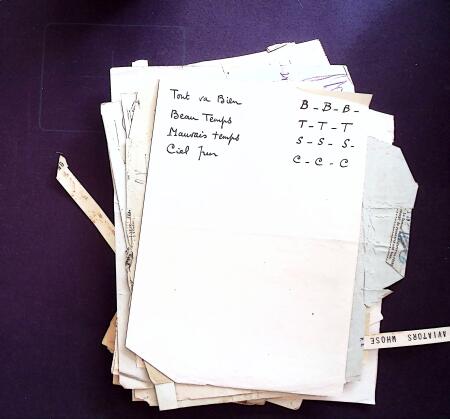 Tout va Bien B-B-B-
Beau Temps T-T-T
Mauvais temps S-S-S-
Ciel pur C-C-C
AVIATORS WHOSE